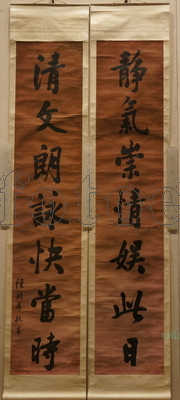 靜氣崇情娛此日
清文朗詠快當時